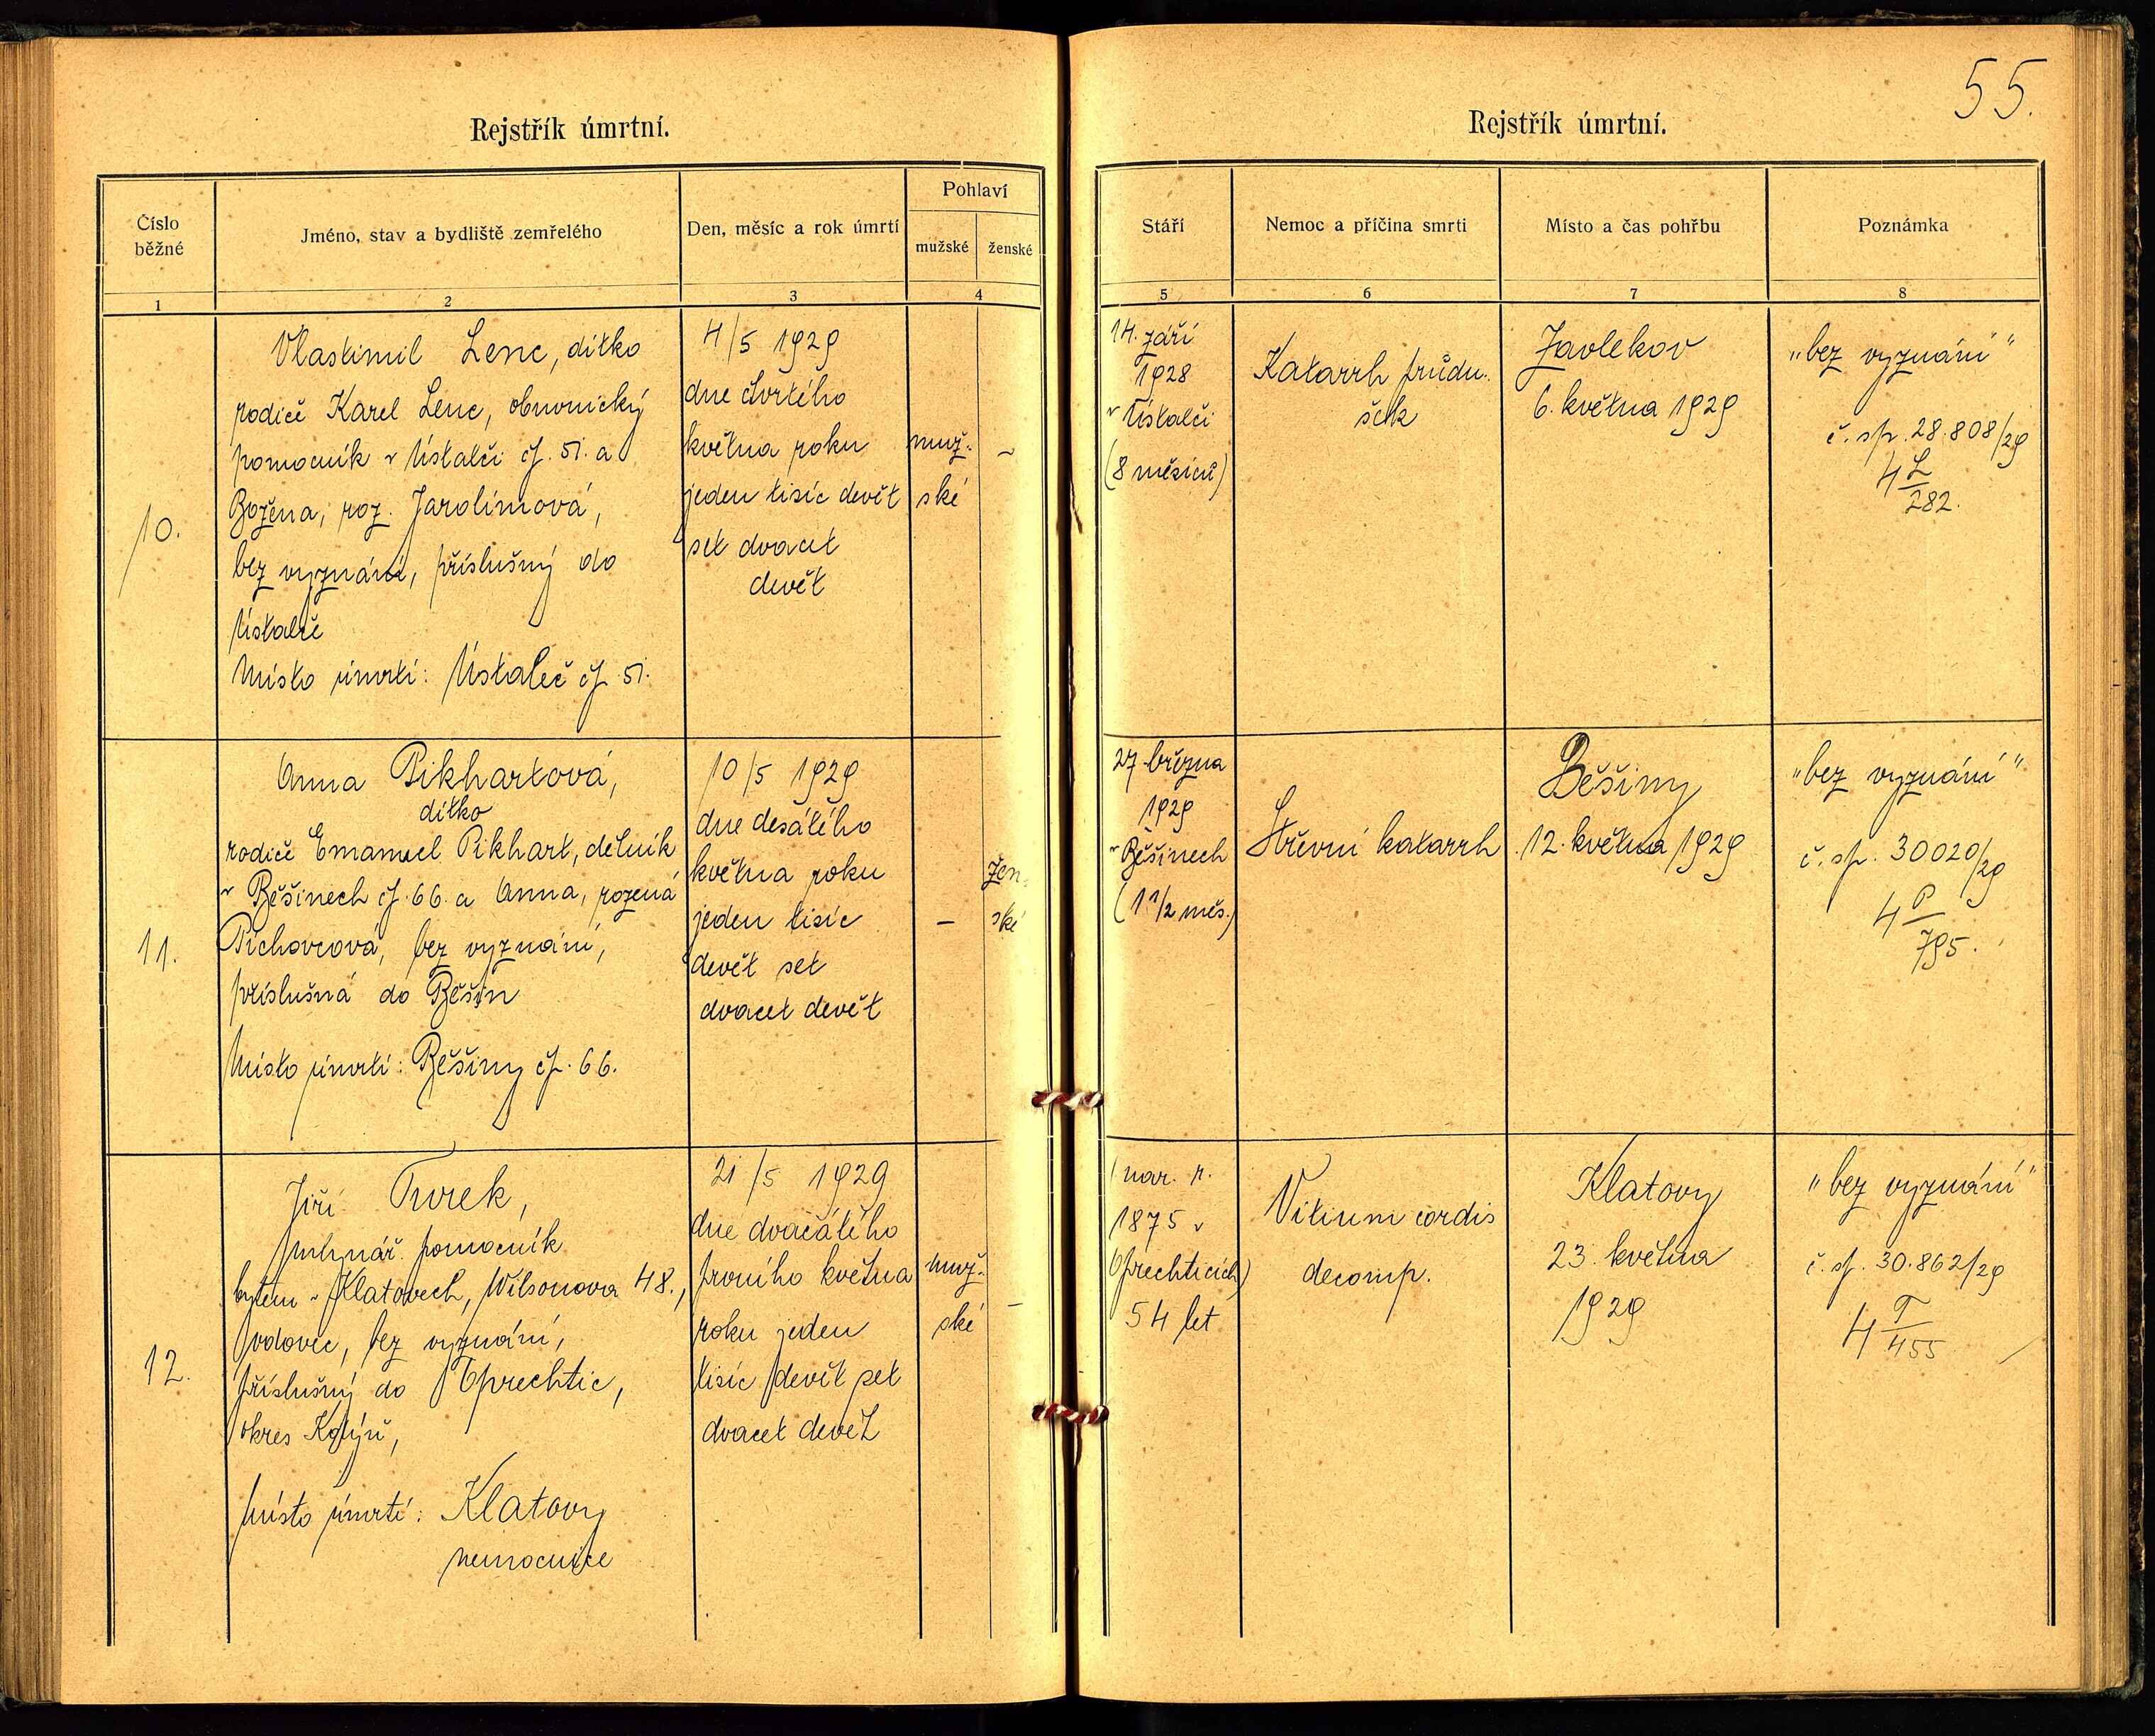 55.
Rejstřík úmrtní.
Rejstřík úmrtní.
Číslo
běžné
Jméno, stav a bydliště zemřelého
Den, měsíc a rok úmrtí
Pohlaví
mužské
ženské
Stáří
Nemoc a příčina smrti
Místo a čas pohřbu
Poznámka
1
2
3
4
5
6
7
8
10.
Vlastimil Lenc, dítko
rodiče Karel Lenc, obuvnický
pomocník v Ústalči čp. 51. a
Božena, roz. Jarolímová,
bez vyznání, příslušný do
Ústalče
Místo úmrtí: Ústaleč čp 51.
4/5 1929
dne čtvrtého
května roku
jeden tisíc devět
set dvacet
devět
muž-
ské
–
14. září
1928
v Ústalči
(8 měsíců)
Katarrh průdu-
šek
Zavlekov
6. května 1929
„bez vyznání"
č. sp. 28.808/29
4 L
282.
11.
Anna Pikhartová,
dítko
rodiče Emanuel Pikhart, dělník
v Běšinech čp. 66. a Anna, rozená
Píchovcová, bez vyznání,
příslušná do Běšin
Místo úmrtí: Běšiny čp. 66.
10/5 1929
dne desátého
května roku
jeden tisíc
devět set
dvacet devět
–
žen-
ské
27. března
1929
v Běšinech
(1 1/2 měs.)
Střevní katarrh
Běšiny
12. května 1929
„bez vyznání"
č. sp. 30020/29
4 P
795.
12.
Jiří Turek,
mlynář. pomocník
bytem v Klatovech, Wilsonova 48.,
vdovec, bez vyznání,
příslušný do Oprechtic,
okres Kdýň,
Místo úmrtí: Klatovy
nemocnice
21/5 1929
dne dvacátého
prvního května
roku jeden
tisíc devět set
dvacet devět
muž-
ské
–
(nar. r.
1875 v
Oprechticích)
54 let
Vitium cordis
decomp.
Klatovy
23. května
1929
„bez vyznání"
č. sp. 30.862/29
4 T
455